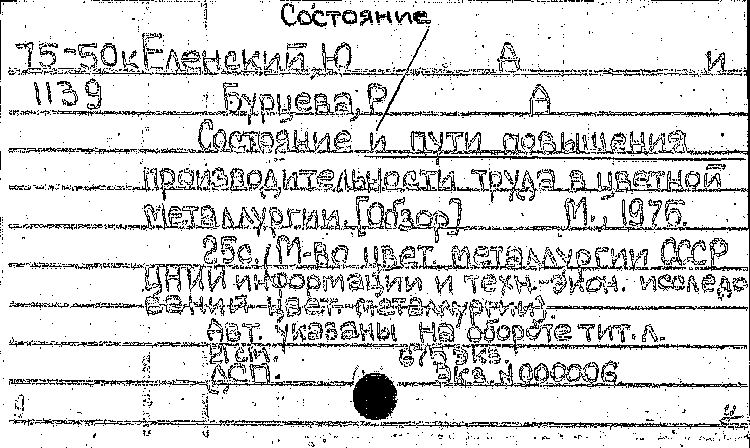 Состояние
75-50к Еленский, Ю А и
1139 Бурцева, Р А
Состояние и пути повышения
производительности труда в цветной
металлургии. [Обзор] М., 1975.
25с. (М-во цвет. металлургии СССР
ЦНИИ информации и техн.-экон. исследо
ваний цвет. металлургии).
Авт. указаны на обороте тит. л.
21см. 675 экз.
ДСП. Экз. N 000006